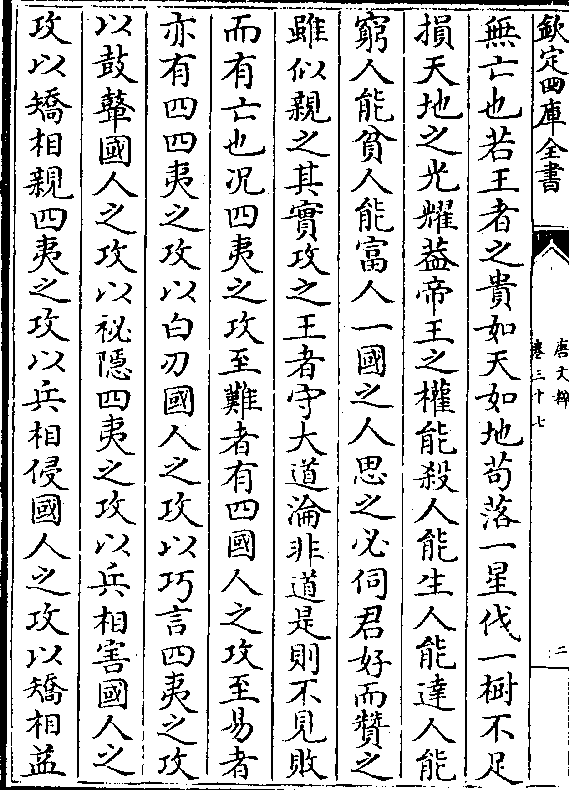 欽定四庫全書
唐文粹
卷三十七
二
無亡也若王者之貴如天如地苟落一星伐一樹不足
損天地之光耀葢帝王之權能殺人能生人能達人能
窮人能貧人能富人一國之人思之必伺君好而贊之
雖似親之其實攻之王者守大道淪非道是則不見敗
而有亡也况四夷之攻至難者有四國人之攻至易者
亦有四四夷之攻以白刃國人之攻以巧言四夷之攻
以鼓鼙國人之攻以祕隱四夷之攻以兵相害國人之
攻以矯相親四夷之攻以兵相侵國人之攻以矯相益